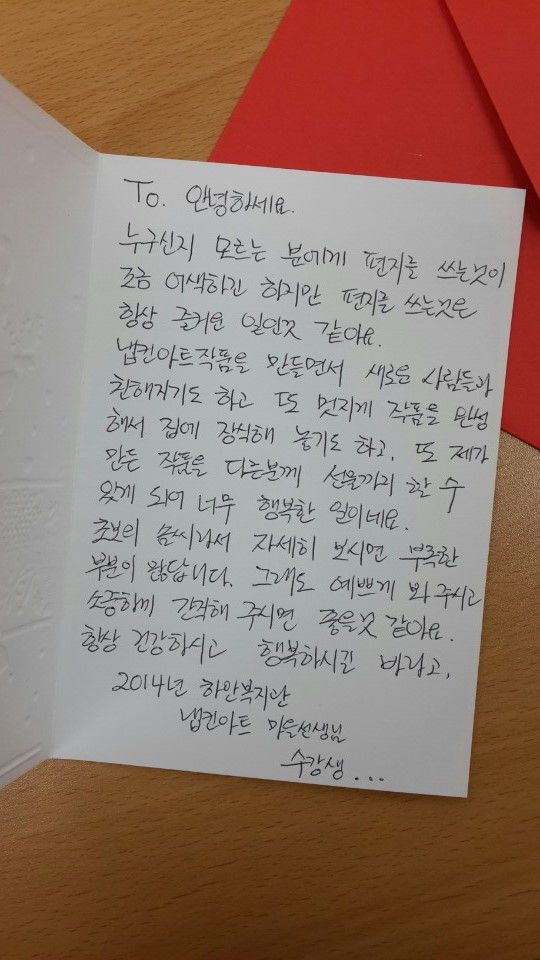 To. 안녕하세요.
누구신지 모르는 분에게 편지를 쓰는것이
조금 어색하긴 하지만 편지를 쓰는것은
항상 즐거운 일인것 같아요.
냅킨아트작품을 만들면서 새로운 사람들과
친해지기도 하고 또 멋지게 작품을 완성
해서 집에 장식해 놓기도 하고, 또 제가
만든 작품을 다른분께 선물까지 할 수
있게 되어 너무 행복한 일이네요.
초보의 솜씨라서 자세히 보시면 부족한
부분이 많답니다. 그래도 예쁘게 봐 주시고
소중하게 간직해 주시면 좋을것 같아요.
항상 건강하시고 행복하시길 바라고,
2014년 하안복지관
냅킨아트 마을선생님
수강생...